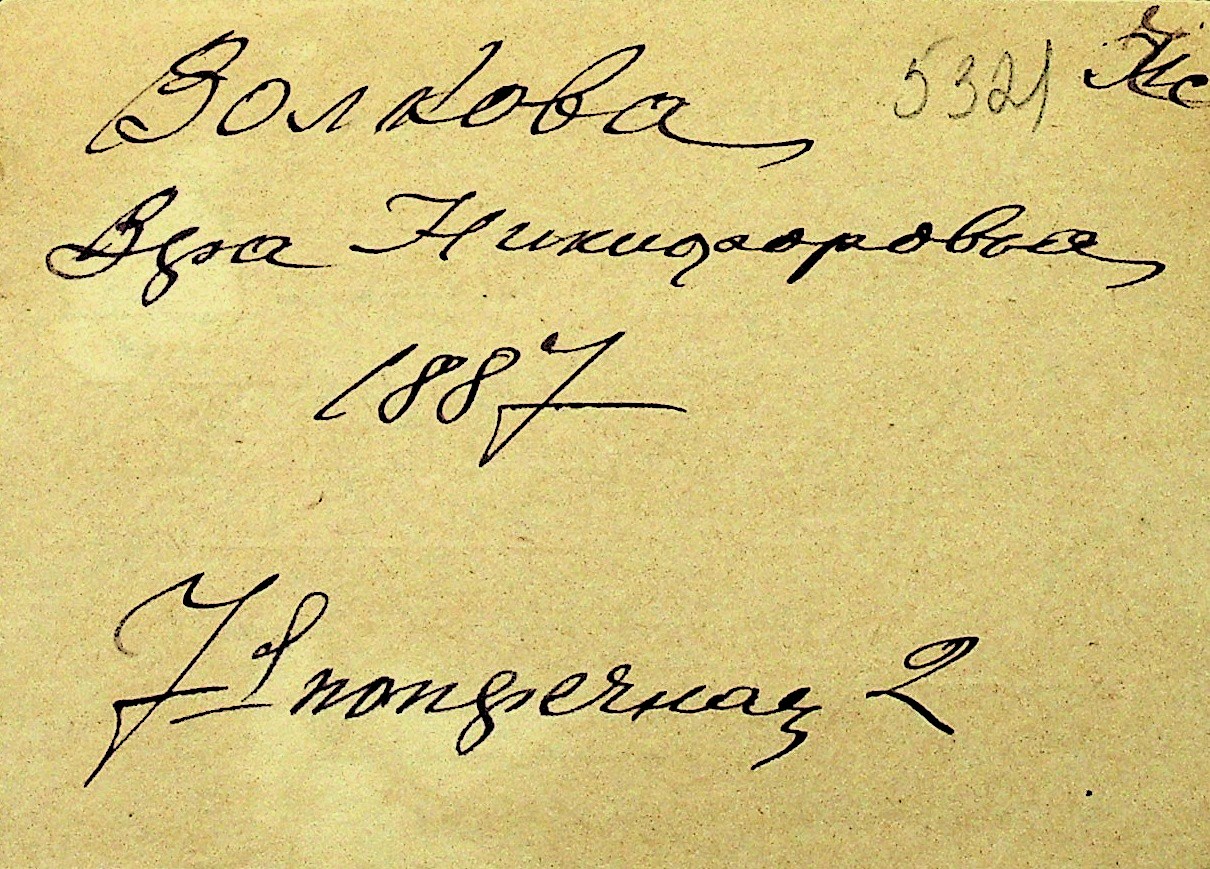 Волкова, 5321
Вера Никифоровна,
1887
7я поперечная 2